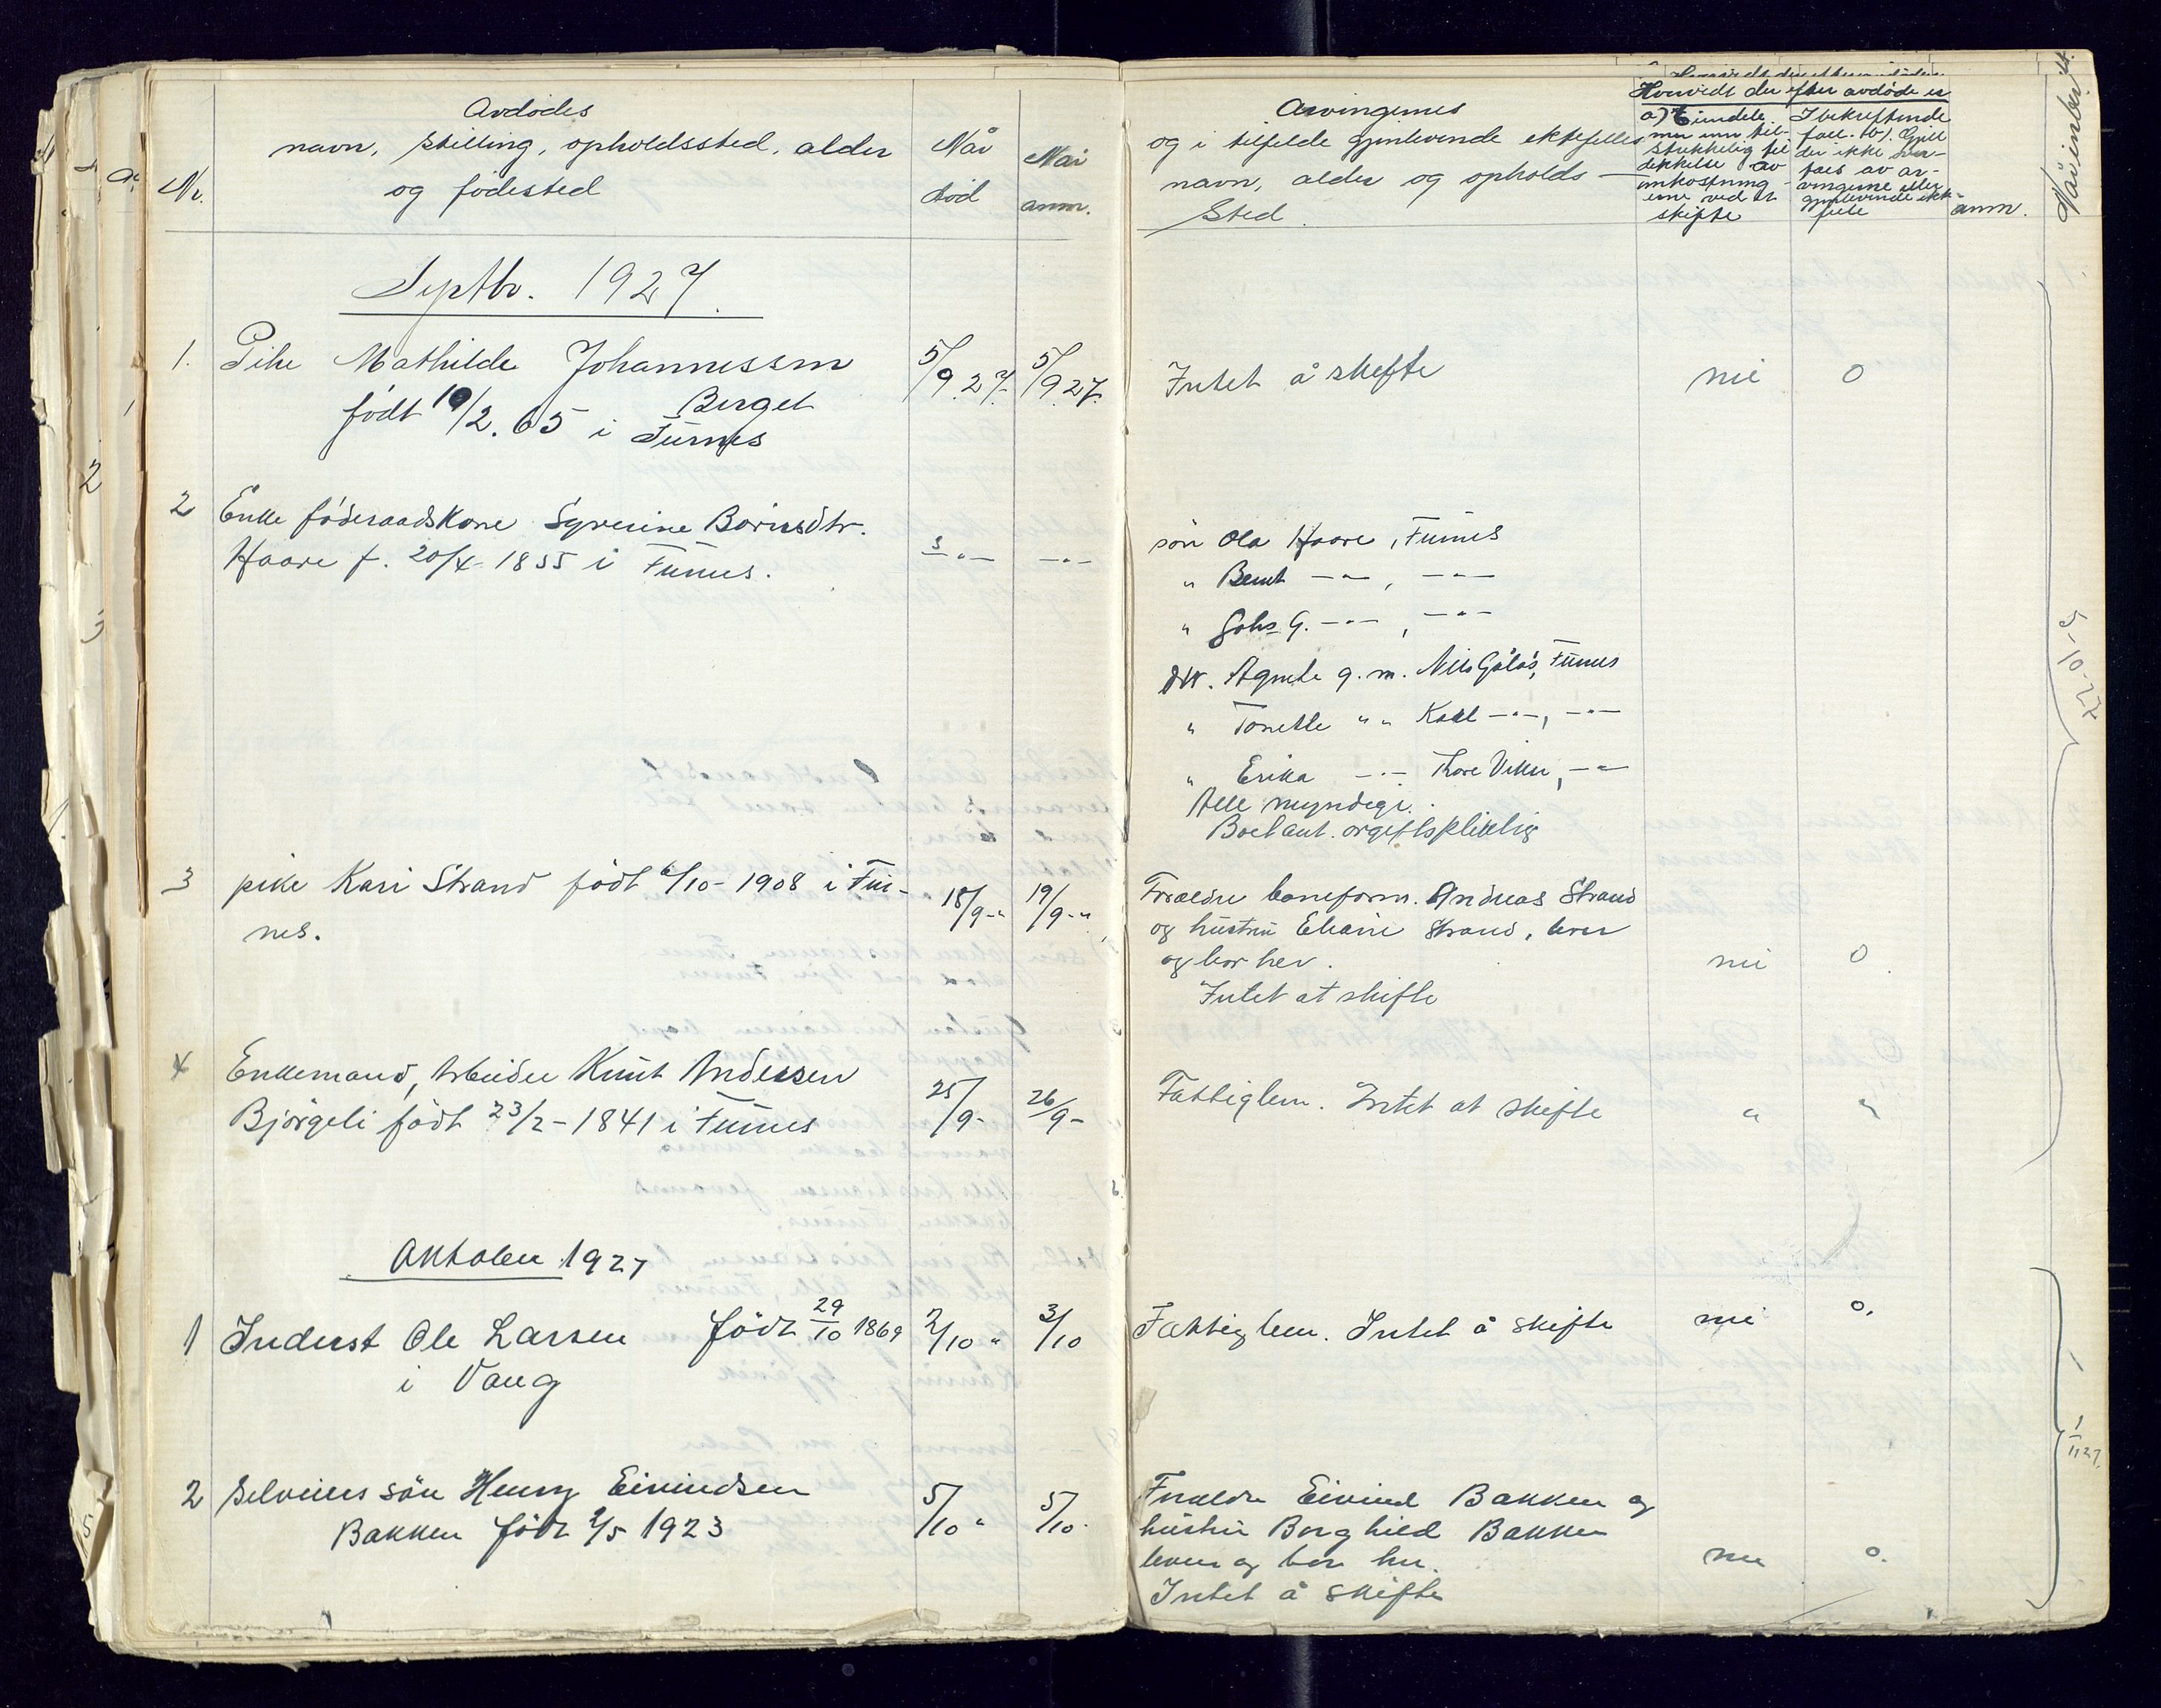 Avdødes
navn, stilling, opholdssted, alder
og fødested
Nr.
Når
død
Når
anm.
Septbr. 1927.
1. Pike Mathilde Johannessen
Berget
født 10/2. 65 i Furnes
5/9.27. 5/9.27.
2 Enke föderaadskone Syverine Bórnsdtr.
Haare f. 20/4-1855 i Furnes.
3 pike Kari Strand født 6/10-1908 i Fur-
nes.
18/9-" 19/9-"
4 Enkemand, Arbeider Knut Andersen
Bjørgeli født 23/2-1841 i Furnes
25/9- 26/9-
Oktober 1927
1 Inderst Ole Larsen født 29/10 1869
i Vang
2/10 " 3/10
2 Selveiers sön Henry Eivindsen
Bakken født 2/5 1923
5/10 " 5/10.
Arvingernes
og i tilfelde gjenlevende ektefelles
navn, alder og opholds-
sted.
Hvorvidt der efter avdöde er
a) Eiendele
mer enn til-
strekkelig til
dekkelse av
omkostning-
ene ved et
skifte
I bekreftende
fall. b) Gjell
der ikke over-
taes av ar-
vingerne eller
gjenlevende ekte-
felle
anm.
Intet å skifte nei 0
sön Ola Haare, Furnes
" Bernt -"-, -"-
" Johs G. -"-, -"-
dtr. Agnete g. m. Nils Gålås, Furnes
" Tonette " " Karl -"-, -"-
" Erika -"- Thore Viken, -"-
Alle myndige.
Boet ant. avgiftspliktig
Foreldre baneform. Andreas Strand
og hustru Eliane Strand, lever
og bor her. nei 0
Intet at skifte
Fattiglem. Intet at skifte " "
Fattiglem. Intet å skifte nei 0.
Foreldre Eivind Bakken og
hustru Borghild Bakken
lever og bor her. nei 0.
Intet å skifte